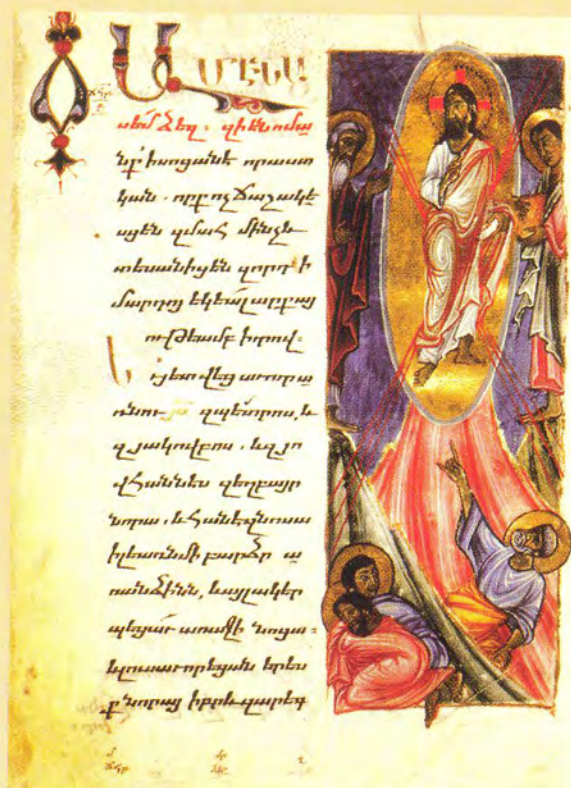 ԱՄԷՆ Ա
սեմ ձեզ. զի են ոմա
նք ի սոցանե որ աստ
կան. որք ոչ ճաշակե
սցեն զմահ մինչև
տեսանիցեն զորդի
մարդոյ եկեալ արքայ
ութեամբ իւրով։
Եւ յետ վեց աւուր ա
ռնու յս զպետրոս, և
զյակովբոս, և զյո
վհաննես զեղբայր
նորա, և հանե զնոսա
ի լեառն մի բարձր ա
ռանձինն, և այլակեր
պեցաւ առաջի նոցա։
և լուսաւորեցան երես
ք նորայ իբրև զարեգ